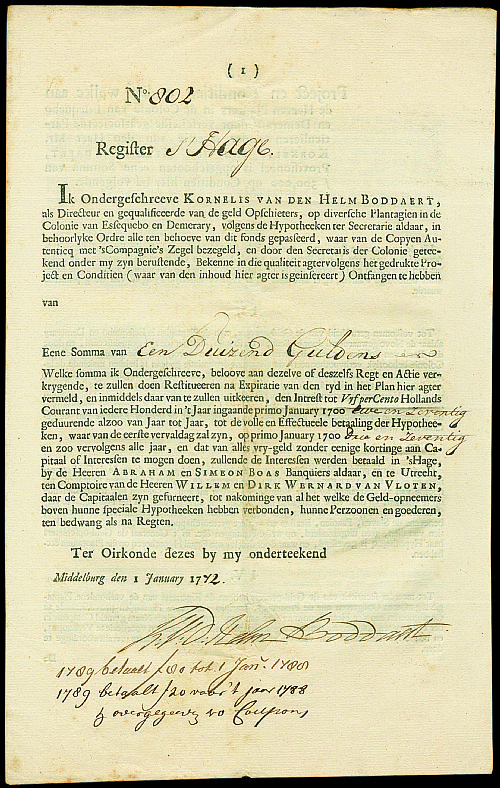 ( 1 )
No. 802
Register s'Hage.
Ik Ondergeschreeve KORNELIS VAN DEN HELM BODDAERT,
als Directeur en gequalificeerde van de geld Opschieters, op diversche Plantagien in de
Colonie van Essequebo en Demerary, volgens de Hypotheeken ter Secretarie aldaar, in
behoorlyke Ordre alle ten behoeve van dit fonds gepasseerd, waar van de Copyen Au-
tenticq met 'sCompagnie's Zegel bezegeld, en door den Secretaris der Colonie getee-
kend onder my zyn berustende, Bekenne in die qualiteit agtervolgens het gedrukte Pro-
ject en Conditien (waar van den inhoud hier agter is geinsereert) Ontfangen te hebben
van
Eene Somma van Een Duizend Guldens
Welke somma ik Ondergeschreeve, beloove aan dezelve of deszelfs Regt en Actie ver-
krygende, te zullen doen Restitueeren na Expiratie van den tyd in het Plan hier agter
vermeld, en inmiddels daar van te zullen uitkeeren, den Intrest tot Vyf per Cento Hollands
Courant van iedere Honderd in 't Jaar ingaande primo January 1700 twee en Zeventig
geduurende alzoo van Jaar tot Jaar, tot de volle en Effectueele betaaling der Hypothee-
ken, waar van de eerste vervaldag zal zyn, op primo January 1700 Drie en Zeventig
en zoo vervolgens alle jaar, en dat van alles vry-geld zonder eenige kortinge aan Ca-
pitaal of Interessen te mogen doen, zullende de Interessen werden betaald in 'sHage,
by de Heeren ABRAHAM en SIMEON BOAS Banquiers aldaar, en te Utrecht,
ten Comptoire van de Heeren WILLEM en DIRK WERNARD VAN VLOTEN,
daar de Capitaalen zyn gefurneert, tot nakominge van al het welke de Geld-opneemers
boven hunne speciale Hypotheeken hebben verbonden, hunne Perzoonen en goederen,
ten bedwang als na Regten.
Ter Oirkonde dezes by my onderteekend
Middelburg den 1 January 1772.
K V D Helm Boddaert
1789 betaalt f 80 tot 1 Jany. 1788
1789 betaalt f 20 voor 't jaar 1788
overgegeven Coupons